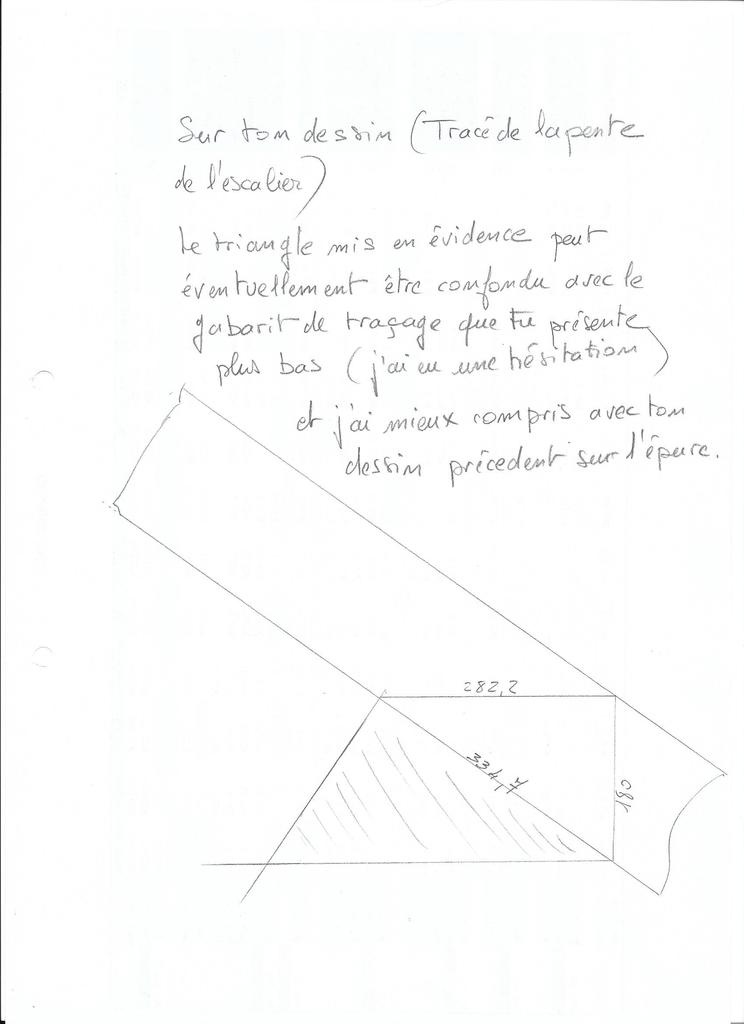 Sur ton dessin (Tracé de la pente
de l'escalier)
Le triangle mis en évidence peut
éventuellement être confondu avec le
gabarit de traçage que tu présente
plus bas (j'ai eu une hésitation)
et j'ai mieux compris avec ton
dessin précedent sur l'épure.
282,2
334,7
180